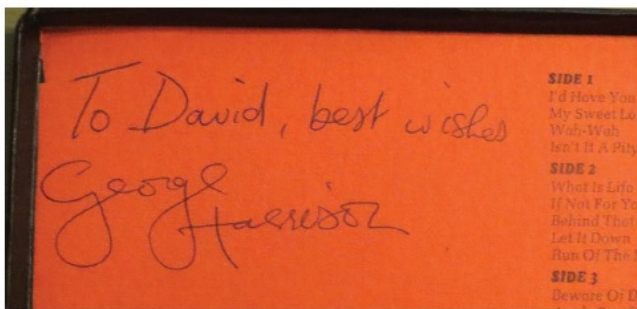 To David, best wishes
George
Harrison
SIDE 1
I'd Have You
My Sweet Lo
Wah-Wah
Isn't It A Pity
SIDE 2
What Is Life
If Not For Yo
Behind That
Let It Down
Run Of The
SIDE 3
Beware Of D